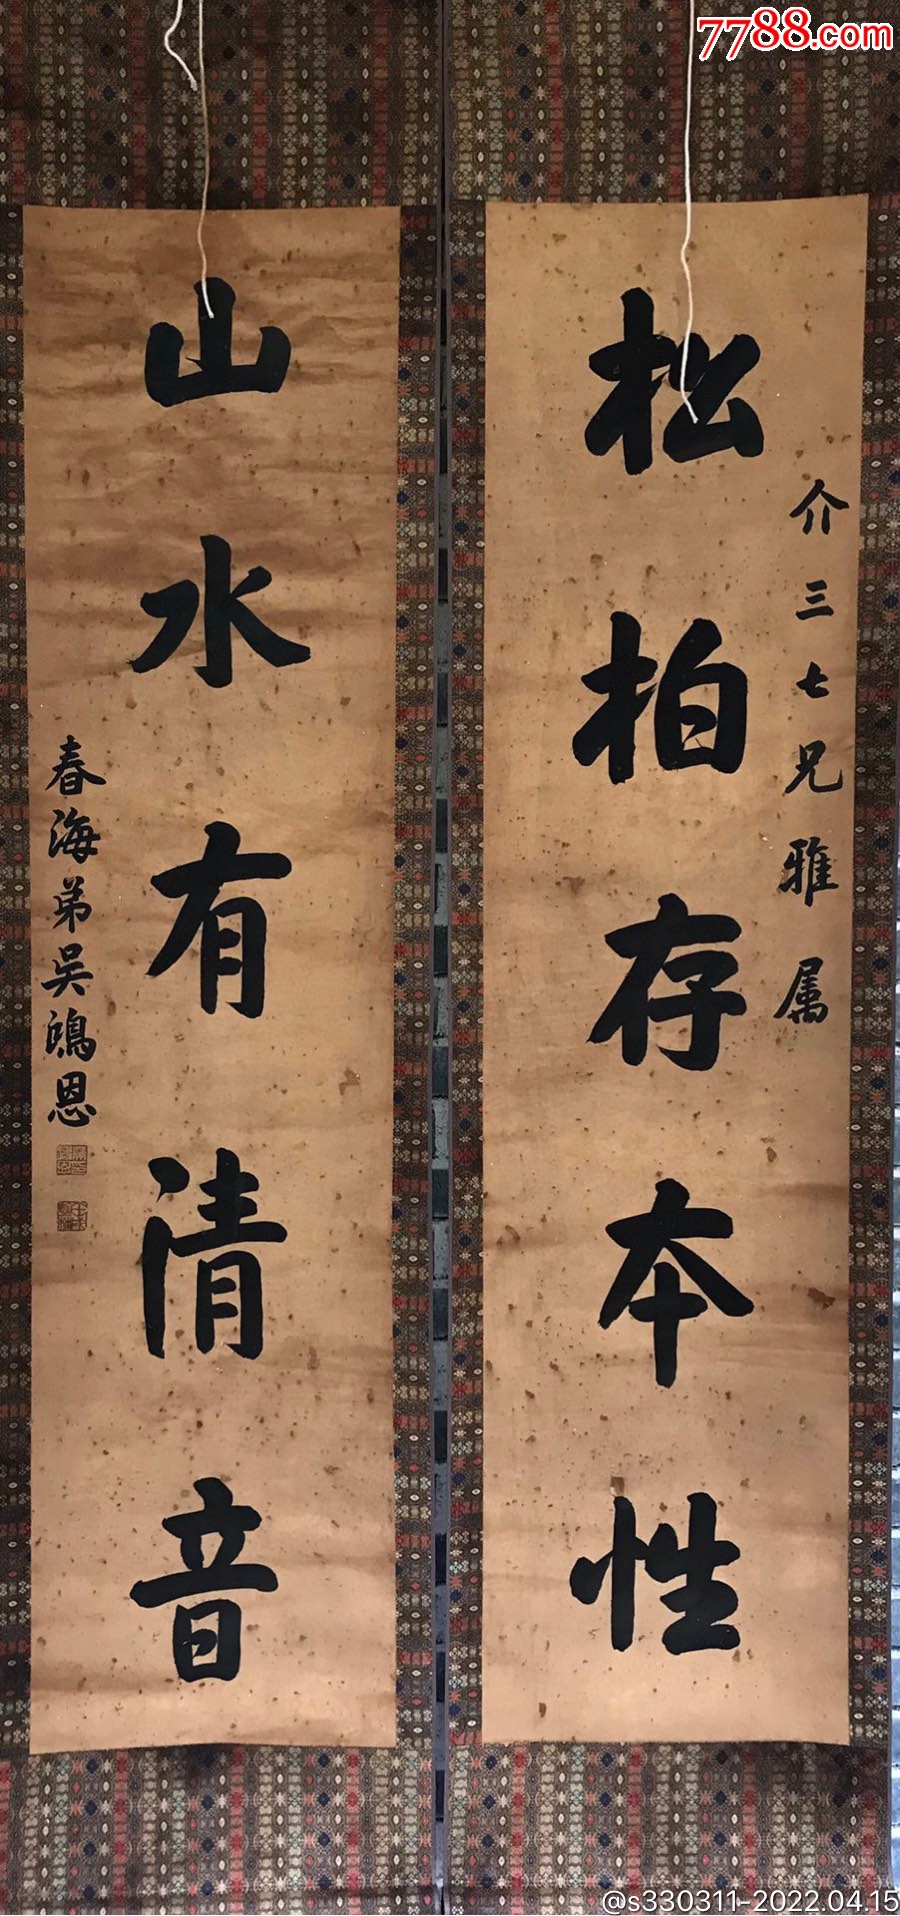 7788.com
介三七兄雅属
松柏存本性
山水有清音
春海弟吴鴻恩
@s330311-2022.04.15